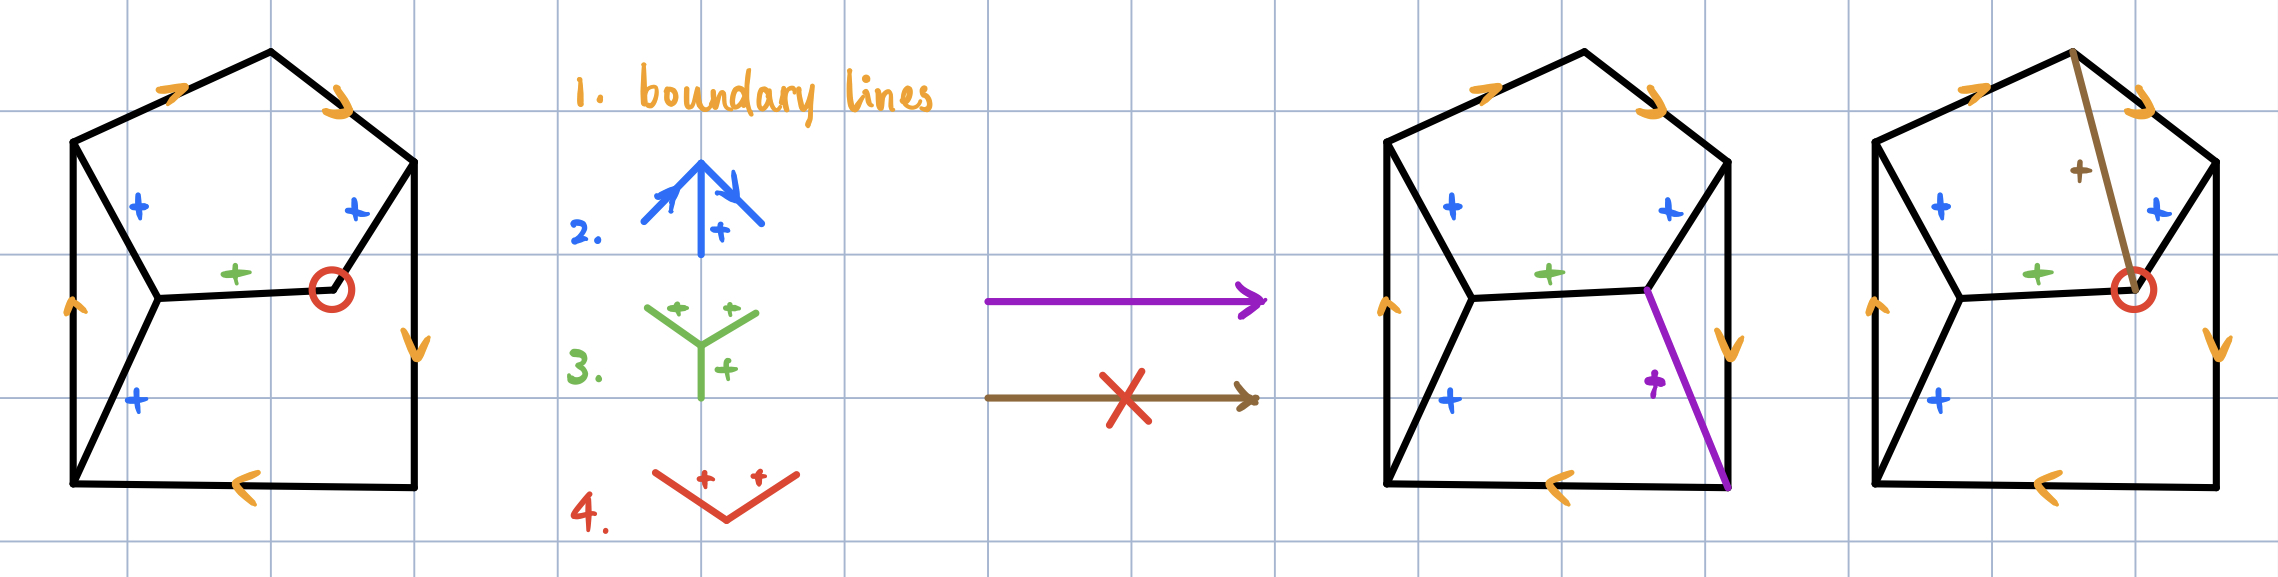 1. boundary lines
2.
3.
4.